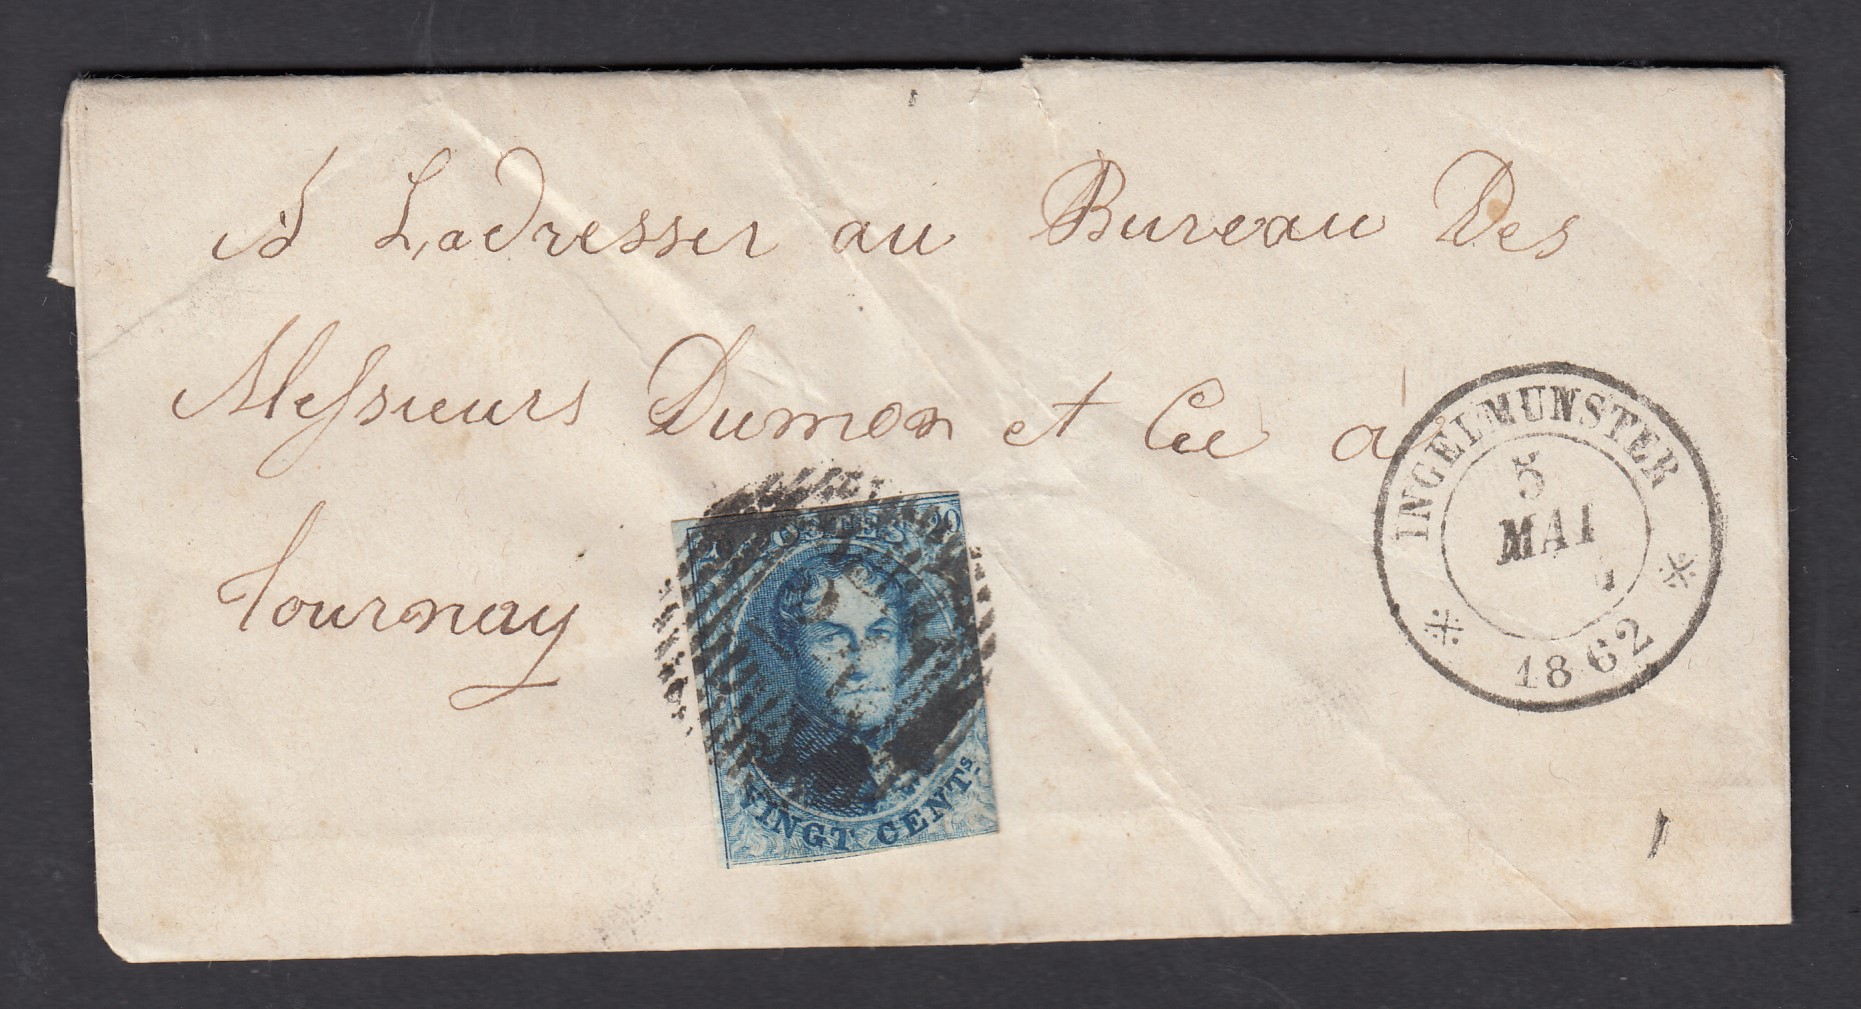 à Ladresser au Bureau Des
Messieurs Dumon et Cie à
Tournay
INGELMUNSTER
5
MAI
1862
20 POSTES 20
VINGT CENTS.